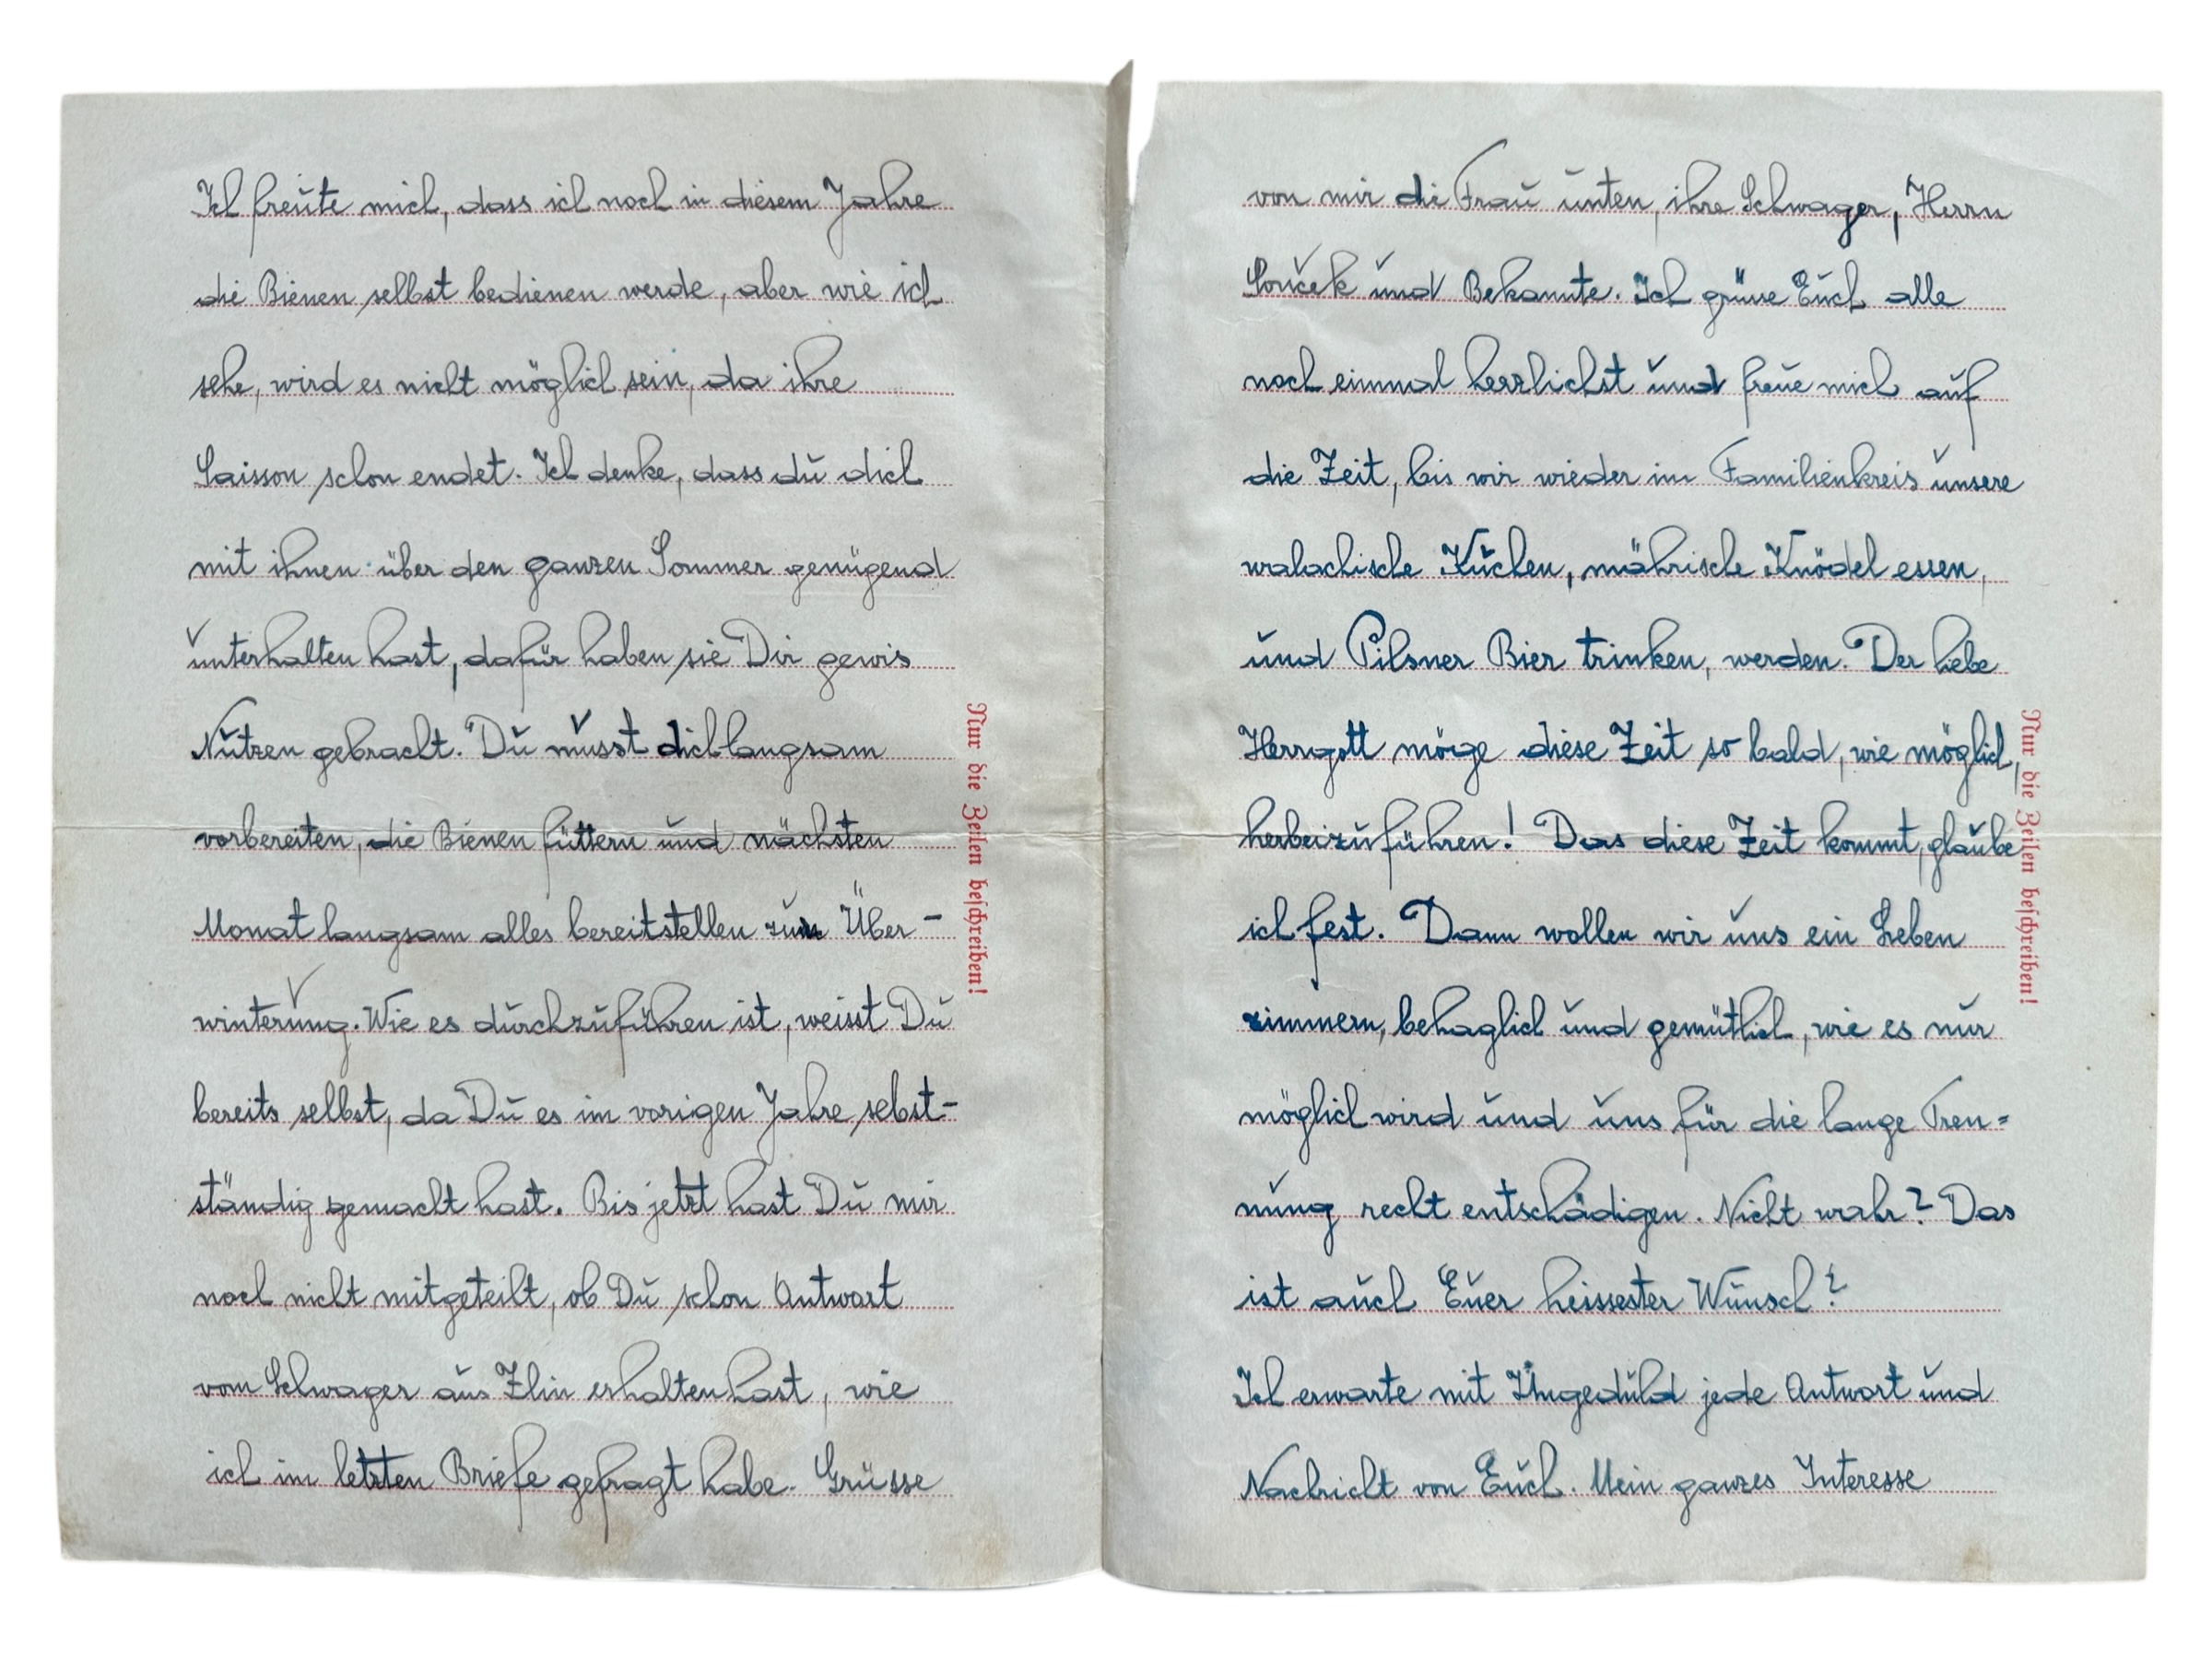 Ich freute mich, dass ich noch in diesem Jahre
die Bienen selbst bedienen werde, aber wie ich
sehe, wird es nicht möglich sein, da ihre
Saisson schon endet. Ich denke, dass du dich
mit ihnen über den ganzen Sommer genügend
unterhalten hast, dafür haben sie Dir gewis
Nutzen gebracht. Du musst dich langsam
vorbereiten, die Bienen füttern und nächsten
Monat langsam alles bereitstellen zur Über-
winterung. Wie es durchzuführen ist, weisst Du
bereits selbst, da Du es im vorigen Jahre sebst-
ständig gemacht hast. Bis jetzt hast Du mir
noch nicht mitgeteilt, ob Du schon Antwort
vom Schwager aus Zlin erhalten hast, wie
ich im letzten Briefe gefragt habe. Grüsse
Nur die Zeilen beschreiben!
von mir die Frau unten, ihre Schwager, Herrn
Souček und Bekannte. Ich grüsse Euch alle
noch einmal herzlichst und freue mich auf
die Zeit, bis wir wieder im Familienkreis unsere
walachische Kuchen, mährische Knödel essen,
und Pilsner Bier trinken, werden. Der liebe
Herrgott möge diese Zeit so bald, wie möglich,
herbeizuführen! Das diese Zeit kommt, glaube
ich fest. Dann wollen wir uns ein Leben
zimmern, behaglich und gemütlich, wie es nur
möglich wird und uns für die lange Tren=
nung recht entschädigen. Nicht wahr? Das
ist auch Euer heissester Wunsch?
Ich erwarte mit Ungeduld jede Antwort und
Nachricht von Euch. Mein ganzes Interesse
Nur die Zeilen beschreiben!